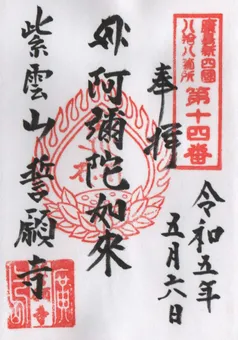 廣島新四國
八拾八ヶ所
第十四番
奉拝
令和五年
五月六日
阿彌陀如來
紫雲山誓願寺